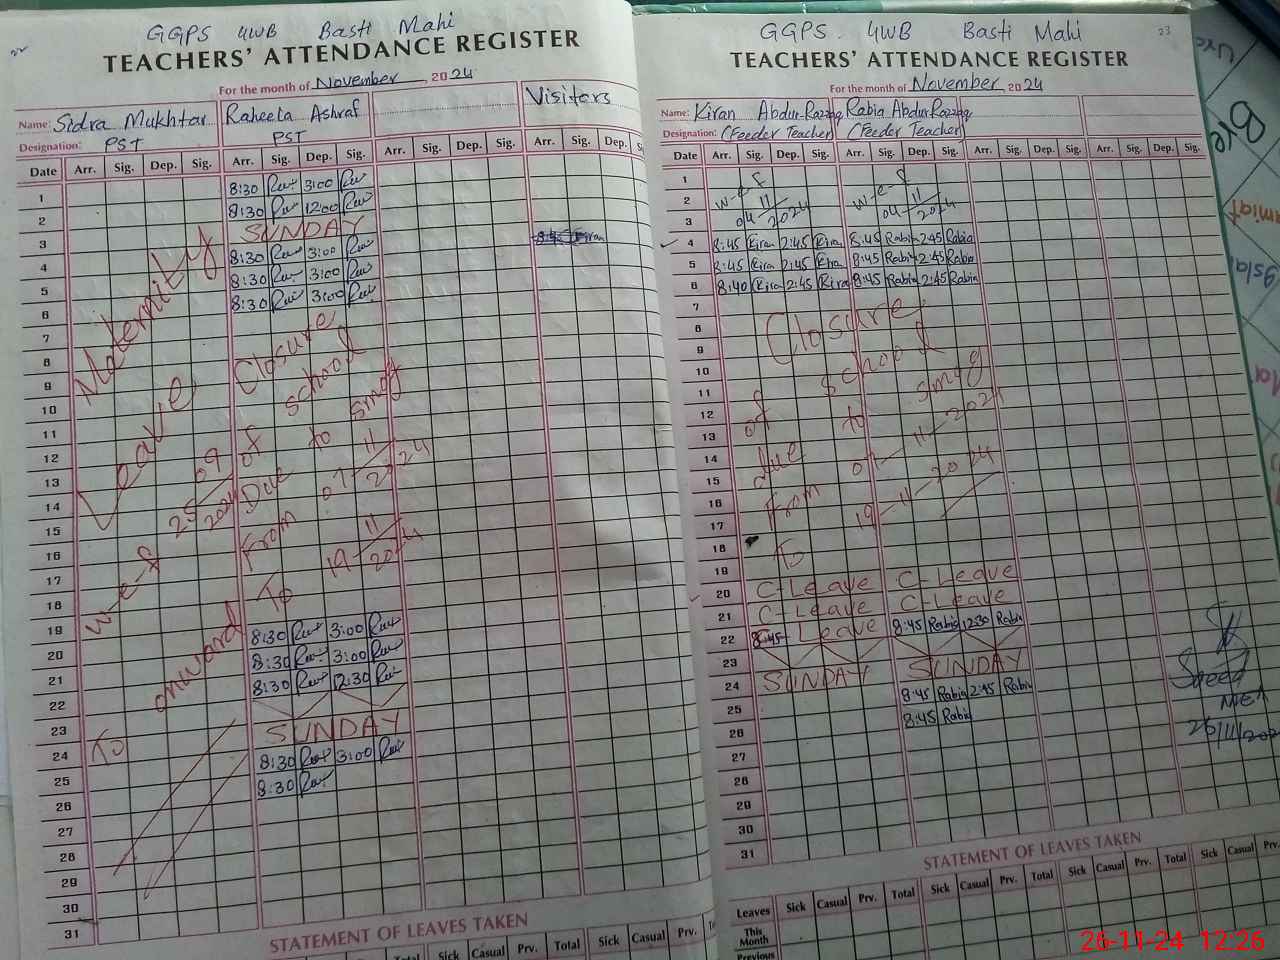 GGPS 4WB Basti Mahi
TEACHERS' ATTENDANCE REGISTER
For the month of November, 2024
Name: Sidra Mukhtar Raheela Ashraf Visitors
Designation: PST PST
Date Arr. Sig. Dep. Sig. Arr. Sig. Dep. Sig. Arr. Sig. Dep. Sig. Arr. Sig. Dep. S
1 8:30 3:00
2 8:30 12:00
3 SUNDAY
4 8:30 3:00
5 8:30 3:00
6 8:30 3:00
7
8
9
10
11
12
13
14
15
16
17
18
19
20 8:30 3:00
21 8:30 3:00
22 8:30 12:30
23
24 SUNDAY
25 8:30 3:00
26 8:30
27
28
29
30
31
Maternity
Leave
w-e-f 25 09 2024
To onward
Closure
of school
Due to smog
From 07 11 2024
To 19 11 2024
STATEMENT OF LEAVES TAKEN
Sick Casual Prv. Total Sick Casual Prv.
GGPS. 4WB Basti Mahi
23
TEACHERS' ATTENDANCE REGISTER
For the month of November 2024
Name: Kiran Abdur Razzaq Rabia Abdur Razzaq
Designation: (Feeder Teacher) (Feeder Teacher)
Date Arr. Sig. Dep. Sig. Arr. Sig. Dep. Sig. Arr. Sig. Dep. Sig. Arr. Sig. Dep. Sig.
1
2
3
w-e-f 04 11 2024 w-e-f 04 11 2024
4 8:45 Kiran 2:45 Kira 8:45 Rabia 2:45 Rabia
5 8:45 Kira 2:45 Kira 8:45 Rabia 2:45 Rabia
6 8:40 Kira 2:45 Kira 8:45 Rabia 2:45 Rabia
7
8
9
10
11
12
13
14
15
16
17
18
19
Closure
of school
due to smog
From 07-11-2024
To 19-11-2024
20 C-Leave C-Leave
21 C-Leave C-Leave
22 8:45 Leave 8:45 Rabia 12:30 Rabia
23
24 SUNDAY SUNDAY
25 8:45 Rabia 2:45 Rabia
26 8:45 Rabia
27
28
29
30
31
Saeed
MEA
26/11/202
STATEMENT OF LEAVES TAKEN
Leaves Sick Casual Prv. Total Sick Casual Prv. Total Sick Casual Prv. Total Sick Casual Prv.
This Month
Previous
26-11-24 12:26